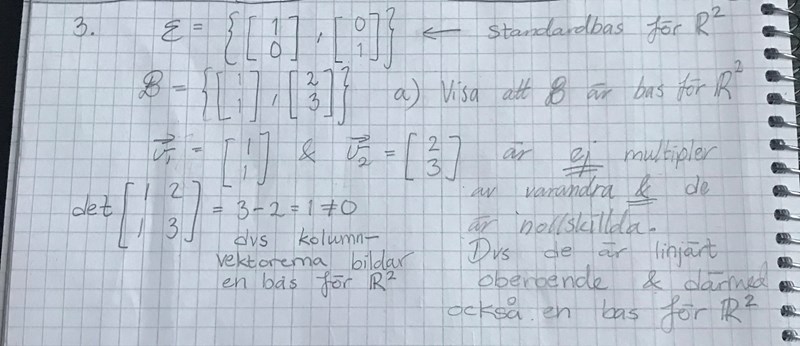 3. ℰ = {[1 0], [0 1]} ← standardbas för ℝ²
ℬ = {[1 1], [2 3]} a) Visa att ℬ är bas för ℝ²
v₁ = [1 1] & v₂ = [2 3] är ej multipler
av varandra & de
är nollskillda.
Dvs de är linjärt
oberoende & därmed
också en bas för ℝ²
det [1 2 1 3] = 3-2 = 1 ≠ 0
dvs kolumn-
vektorerna bildar
en bas för ℝ²